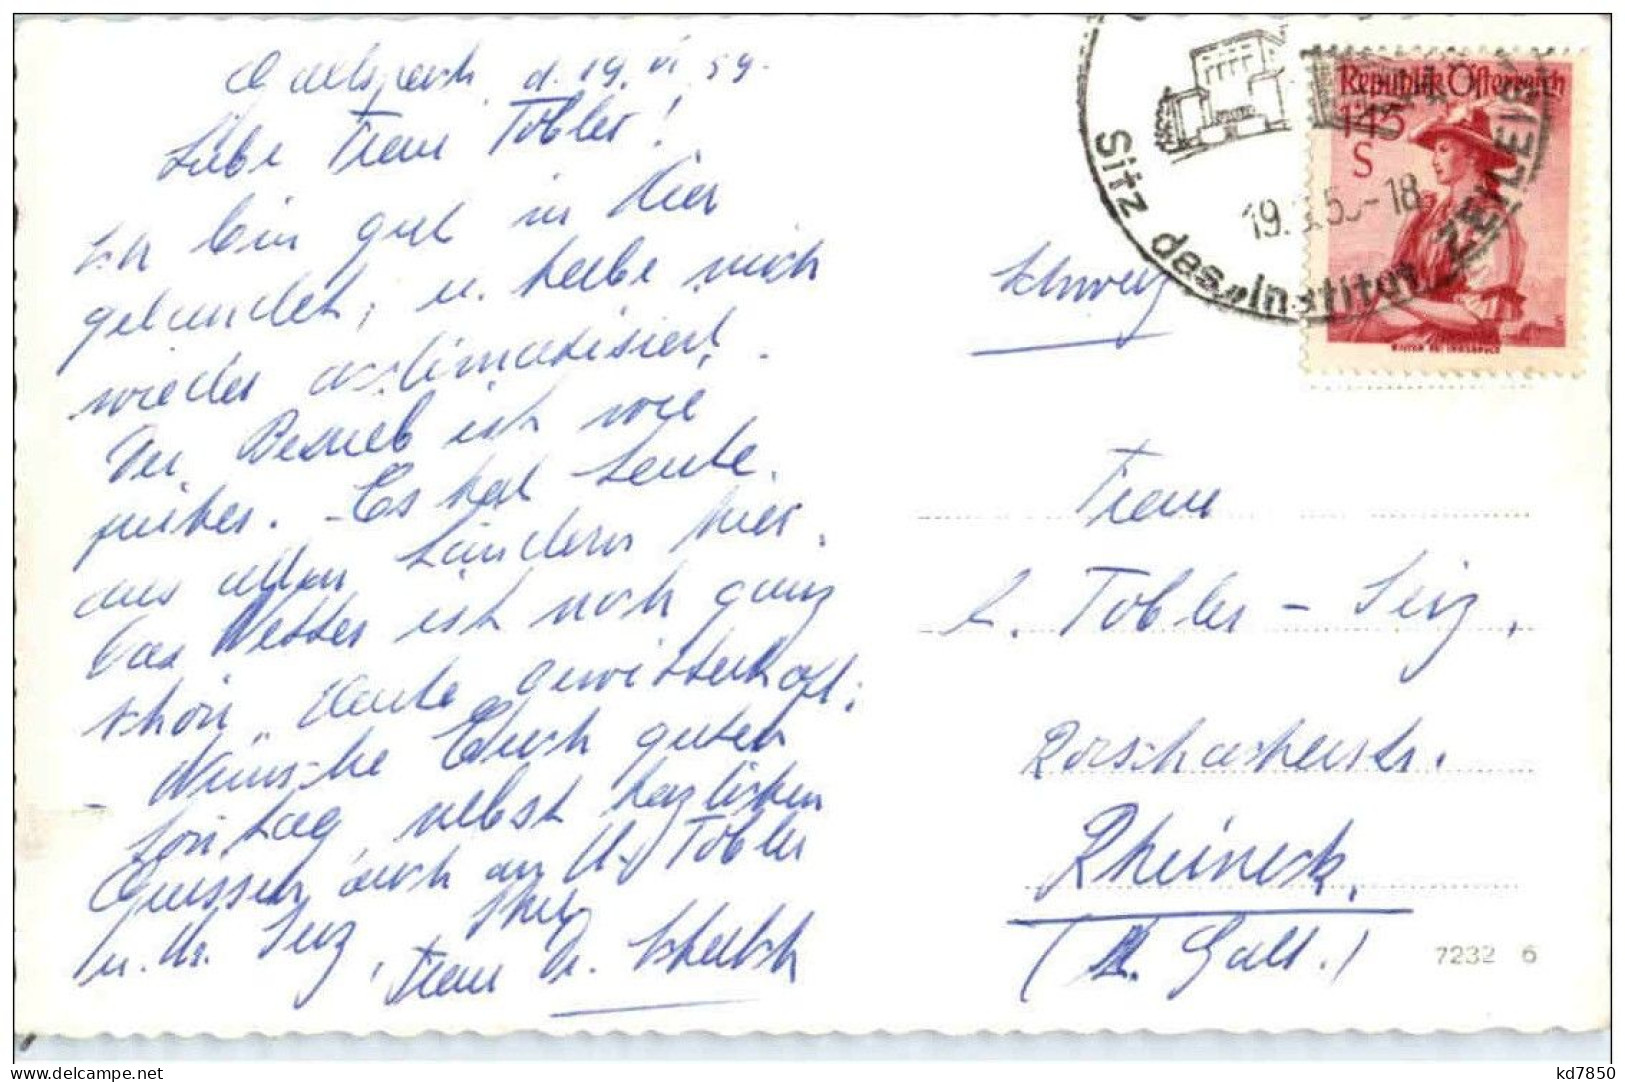 Gallspach, d. 19. VI 59.
Liebe Frau Tobler!
Ich bin gut in hier
gelandet, u. habe mich
wieder acclimatisiert.
Der Betrieb ist wie
früher. - Es hat Leute
aus allen Ländern hier.
Das Wetter ist noch ganz
schön, Heute gewitterhaft.
- Wünsche Euch guten
Sonntag nebst herzlichen
Grüssen auch an Hr. Tobler
u. Hr. Seiz, Ihre
Frau
Schweiz
Sitz des „Institut ZEILEIS
19. 5 -18
Republik Österreich
1·45
S
Frau
Tobler - Seiz,
Rorschacherstr.
Rheineck,
(St. Gall.)
7232 6
delcampe.net
kd7850